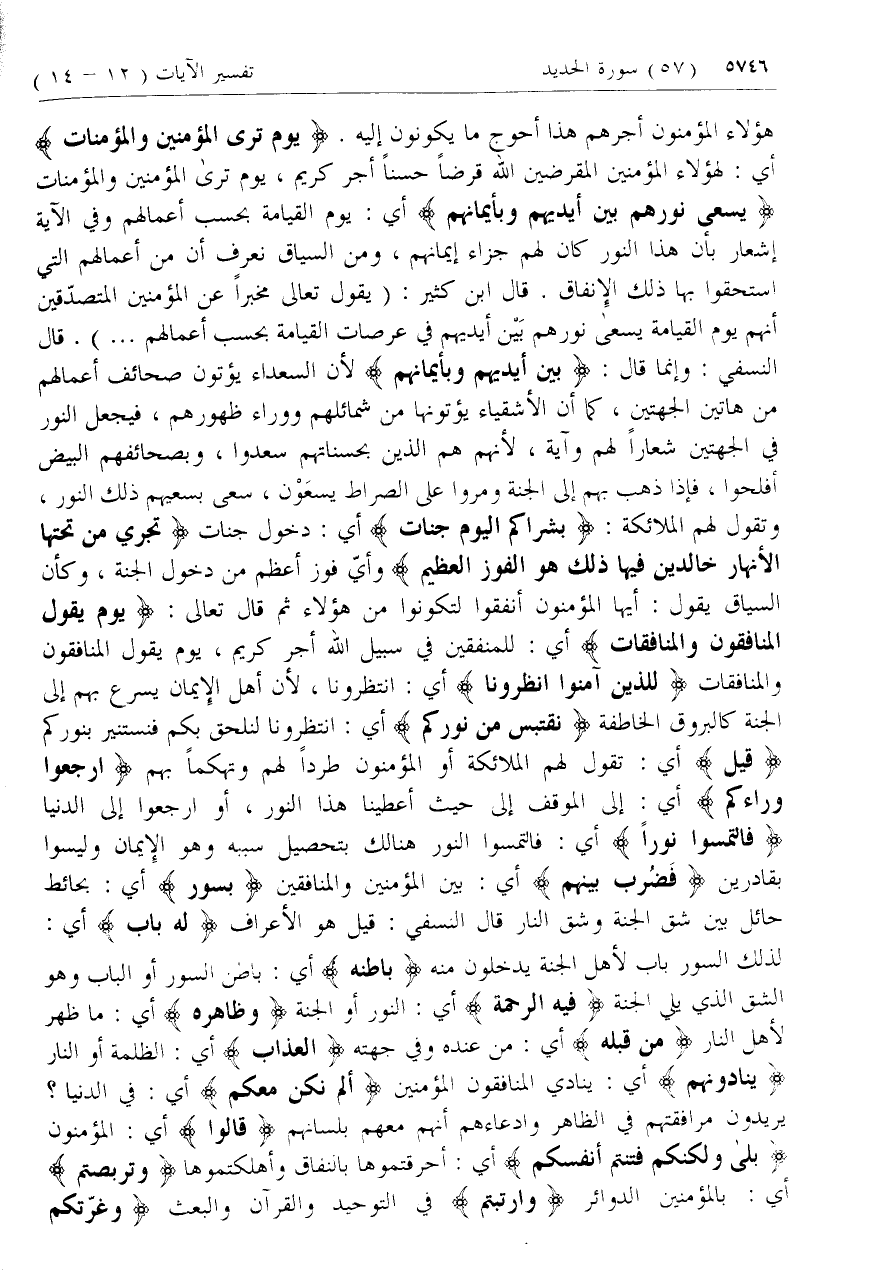 ٥٧٤٦ (٥٧) سورة الحديد تفسير الآيات ( ١٢ – ١٤ )
هؤلاء المؤمنون أجرهم هذا أحوج ما يكونون إليه . ﴿ يوم ترى المؤمنين والمؤمنات ﴾
أي : لهؤلاء المؤمنين المقرضين الله قرضاً حسناً أجر كريم ، يوم ترىٰ المؤمنين والمؤمنات
﴿ يسعى نورهم بين أيديهم وبأيمانهم ﴾ أي : يوم القيامة بحسب أعمالهم وفي الآية
إشعار بأن هذا النور كان لهم جزاء إيمانهم ، ومن السياق نعرف أن من أعمالهم التي
استحقوا بها ذلك الإنفاق . قال ابن كثير : ( يقول تعالى مخبراً عن المؤمنين المتصدّقين
أنهم يوم القيامة يسعىٰ نورهم بَيْن أيديهم في عرصات القيامة بحسب أعمالهم ... ) . قال
النسفي : وإنما قال : ﴿ بين أيديهم وبأيمانهم ﴾ لأن السعداء يؤتون صحائف أعمالهم
من هاتين الجهتين ، كما أن الأشقياء يؤتونها من شمائلهم ووراء ظهورهم ، فيجعل النور
في الجهتين شعاراً لهم وآية ، لأنهم هم الذين بحسناتهم سعدوا ، وبصحائفهم البيض
أفلحوا ، فإذا ذهب بهم إلى الجنة ومروا على الصراط يسعَوْن ، سعى بسعيهم ذلك النور ،
وتقول لهم الملائكة : ﴿ بشراكم اليوم جنات ﴾ أي : دخول جنات ﴿ تجري من تحتها
الأنهار خالدين فيها ذلك هو الفوز العظيم ﴾ وأيّ فوز أعظم من دخول الجنة ، وكأن
السياق يقول : أيها المؤمنون أنفقوا لتكونوا من هؤلاء ثم قال تعالى : ﴿ يوم يقول
المنافقون والمنافقات ﴾ أي : للمنفقين في سبيل الله أجر كريم ، يوم يقول المنافقون
والمنافقات ﴿ للذين آمنوا انظرونا ﴾ أي : انتظرونا ، لأن أهل الإيمان يسرع بهم إلى
الجنة كالبروق الخاطفة ﴿ نقتبس من نوركم ﴾ أي : انتظرونا لنلحق بكم فنستنير بنوركم
﴿ قيل ﴾ أي : تقول لهم الملائكة أو المؤمنون طرداً لهم وتهكماً بهم ﴿ ارجعوا
وراءكم ﴾ أي : إلى الموقف إلى حيث أعطينا هذا النور ، أو ارجعوا إلى الدنيا
﴿ فالتمسوا نوراً ﴾ أي : فالتمسوا النور هنالك بتحصيل سببه وهو الإيمان وليسوا
بقادرين ﴿ فَضُرب بينهم ﴾ أي : بين المؤمنين والمنافقين ﴿ بسور ﴾ أي : بحائط
حائل بين شق الجنة وشق النار قال النسفي : قيل هو الأعراف ﴿ له باب ﴾ أي :
لذلك السور باب لأهل الجنة يدخلون منه ﴿ باطنه ﴾ أي : باطن السور أو الباب وهو
الشق الذي يلي الجنة ﴿ فيه الرحمة ﴾ أي : النور أو الجنة ﴿ وظاهره ﴾ أي : ما ظهر
لأهل النار ﴿ من قبله ﴾ أي : من عنده وفي جهته ﴿ العذاب ﴾ أي : الظلمة أو النار
﴿ ينادونهم ﴾ أي : ينادي المنافقون المؤمنين ﴿ ألم نكن معكم ﴾ أي : في الدنيا ؟
يريدون مرافقتهم في الظاهر وادعاءهم أنهم معهم بلسانهم ﴿ قالوا ﴾ أي : المؤمنون
﴿ بلىٰ ولكنكم فتنتم أنفسكم ﴾ أي : أحرقتموها بالنفاق وأهلكتموها ﴿ وتربصتم ﴾
أي : بالمؤمنين الدوائر ﴿ وارتبتم ﴾ في التوحيد والقرآن والبعث ﴿ وغرّتكم